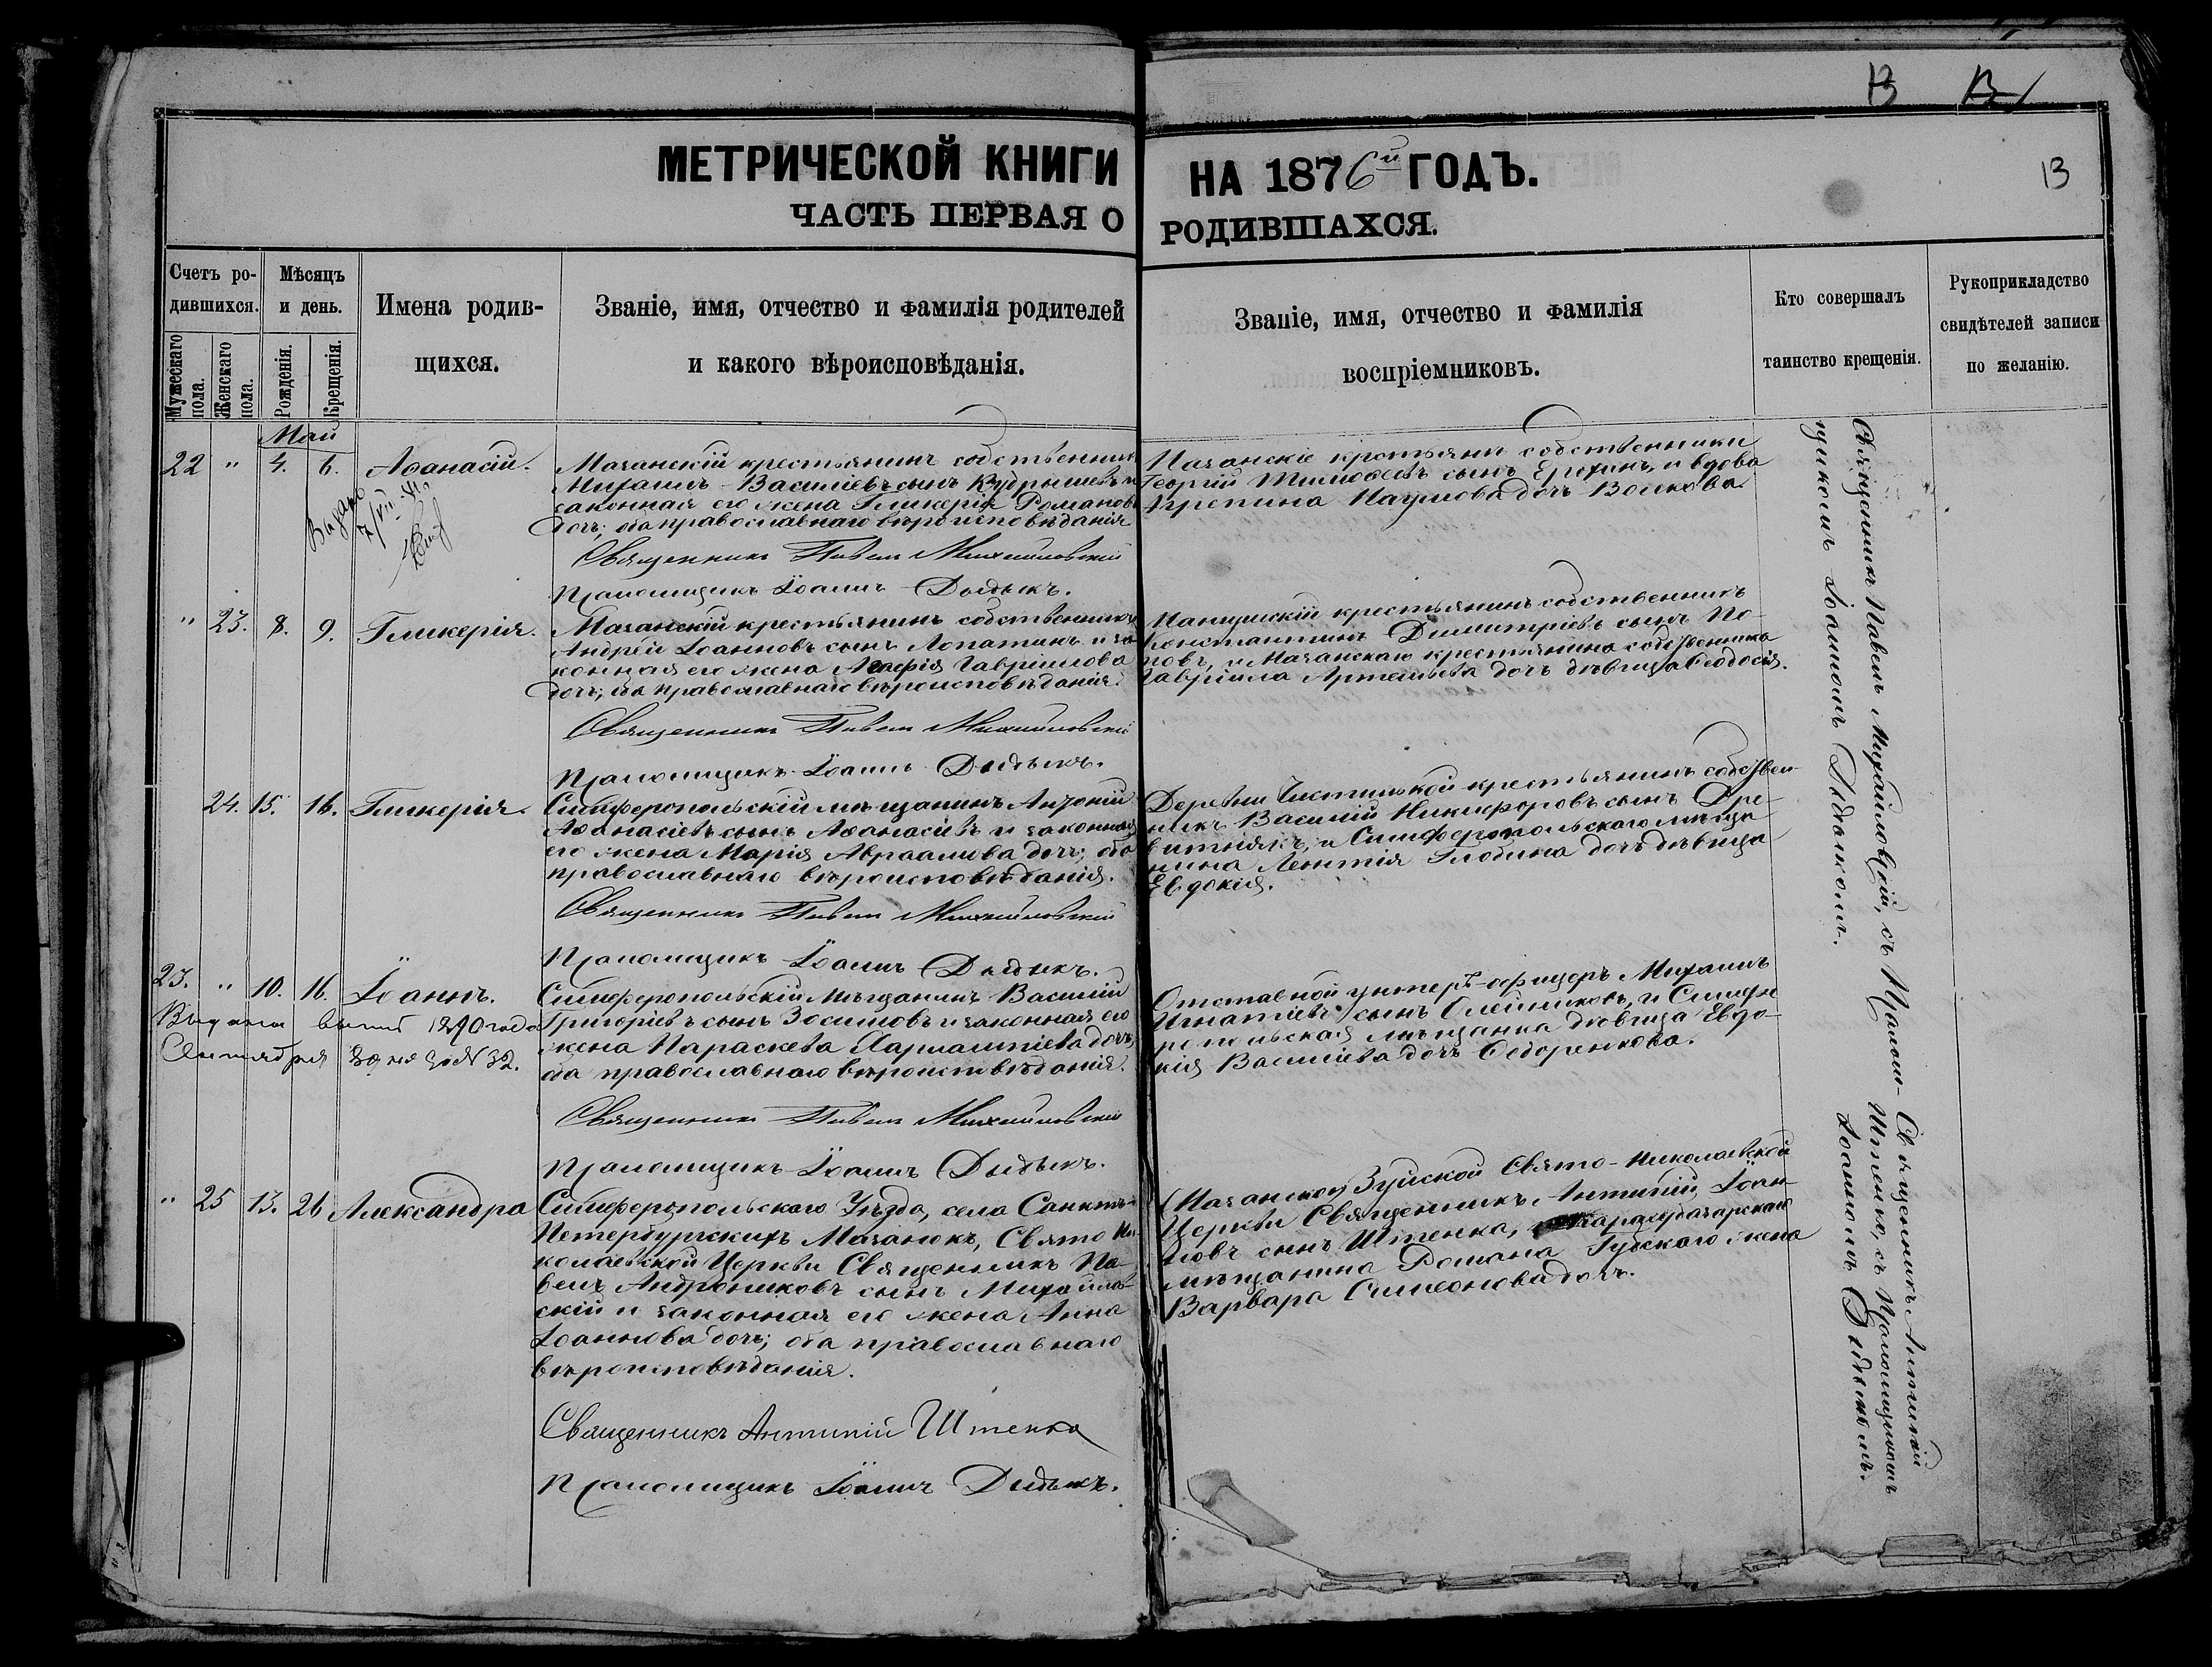 13 13
МЕТРИЧЕСКОЙ КНИГИ НА 1876й ГОДЪ.
13
ЧАСТЬ ПЕРВАЯ О РОДИВШАХСЯ.
Счетъ ро-
дившихся.
Мужескаго
пола.
Женскаго
пола.
Мѣсяцъ
и день.
Рожденія.
Крещенія.
Имена родив-
щихся.
Званіе, имя, отчество и фамилія родителей
и какого вѣроисповѣданія.
Званіе, имя, отчество и фамилія
воспріемниковъ.
Кто совершалъ
таинство крещенія.
Рукоприкладство
свидѣтелей записи
по желанію.
Май
22 " 4. 6. Аѳанасій.
Выдано
Мазанскій крестьянинъ собственникъ
Михаилъ Василіевъ сынъ Кудрышевъ и
законная его жена Гликерія Романова
дочь; оба православнаго вѣроисповѣданія
Священникъ Павелъ Михайловскій
Псаломщикъ Іоаннъ Дыдыкъ.
Мазанскіе крестьяне собственники
Георгій Тимоѳеевъ сынъ Ерохинъ, и вдова
Агрепина Наумова дочь Волкова.
" 23. 8. 9. Гликерія.
Мазанскій крестьянинъ собственникъ
Андрей Іоанновъ сынъ Лопатинъ и за-
конная его жена Гавріилова
дочь; оба православнаго вѣроисповѣданія.
Священникъ Павелъ Михайловскій
Псаломщикъ Іоаннъ Дыдыкъ.
крестьянинъ собственникъ
Константинъ Димитріевъ сынъ По-
повъ, и Мазанскаго крестьянина собственника
Гавріила Артемьева дочь дѣвица Ѳеодосія.
24. 15. 16. Гликерія.
Симферопольскій мѣщанинъ Антоній
Аѳанасіевъ сынъ Аѳанасіевъ и законная
его жена Марія Авраамова дочь; оба
православнаго вѣроисповѣданія.
Священникъ Павелъ Михайловскій
Псаломщикъ Іоаннъ Дыдыкъ.
Деревни крестьянинъ собствен-
никъ Василій Никифоровъ сынъ Дре-
витнякъ, и Симферопольскаго мѣща-
нина Леонтія Глобина дочь дѣвица
Евдокія.
23. " 10. 16. Іоаннъ.
Выдана 1890 года
Сентября 30 дня за № 32.
Симферопольскій мѣщанинъ Василій
Григоріевъ сынъ Зосимовъ и законная его
жена Параскева Харлампіева дочь,
оба православнаго вѣроисповѣданія.
Священникъ Павелъ Михайловскій
Псаломщикъ Іоаннъ Дыдыкъ.
Отставной унтеръ-офицеръ Михаилъ
Игнатіевъ сынъ Олейниковъ, и Симфе-
ропольская мѣщанка дѣвица Евдо-
кія Василіева дочь Ѳедоренкова.
" 25 13. 26 Александра
Симферопольскаго Уѣзда, села Санктъ-
Петербургскихъ Мазанокъ, Свято Ни-
колаевской Церкви Священникъ Па-
велъ Андрониковъ сынъ Михайлов-
скій и законная его жена Анна
Іоаннова дочь; оба православнаго
вѣроисповѣданія.
Священникъ Антипій Штенко
Псаломщикъ Іоаннъ Дыдыкъ.
Зуйской Свято-Николаевской
Церкви Священникъ Антипій Іоан-
новъ сынъ Штенко, Карасубазарскаго
мѣщанина Романа Губскаго жена
Варвара Симеонова дочь.
Священникъ Павелъ Михайловскій, съ Псалом-
щикомъ Іоанномъ Дыдыкомъ.
Священникъ Антипій
Штенко, съ Псаломщикомъ
Іоанномъ Дыдыкомъ.